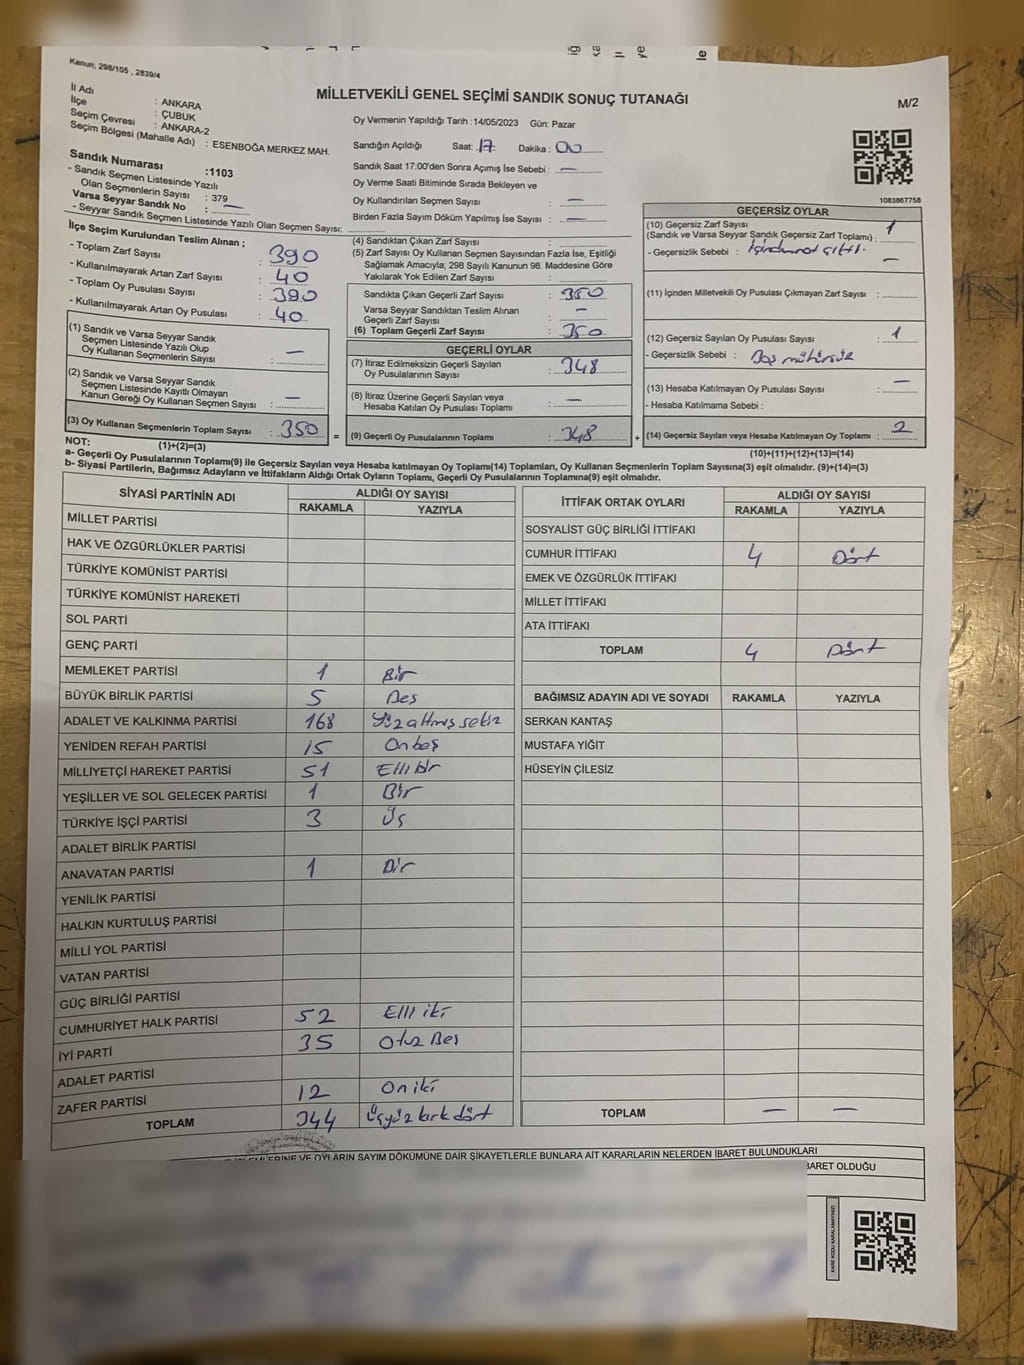 Kanun; 298/105 , 2839/4
MİLLETVEKİLİ GENEL SEÇİMİ SANDIK SONUÇ TUTANAĞI
M/2
İl Adı : ANKARA
İlçe : ÇUBUK
Seçim Çevresi : ANKARA-2
Seçim Bölgesi (Mahalle Adı) : ESENBOĞA MERKEZ MAH.
Sandık Numarası :1103
- Sandık Seçmen Listesinde Yazılı
Olan Seçmenlerin Sayısı : 379
Varsa Seyyar Sandık No : —
- Seyyar Sandık Seçmen Listesinde Yazılı Olan Seçmen Sayısı:
Oy Vermenin Yapıldığı Tarih : 14/05/2023 Gün: Pazar
Sandığın Açıldığı Saat: 17 Dakika : 00
Sandık Saat 17:00'den Sonra Açımış İse Sebebi : —
Oy Verme Saati Bitiminde Sırada Bekleyen ve
Oy Kullandırılan Seçmen Sayısı : —
Birden Fazla Sayım Döküm Yapılmış İse Sayısı : —
1083867758
İlçe Seçim Kurulundan Teslim Alınan ;
- Toplam Zarf Sayısı : 390
- Kullanılmayarak Artan Zarf Sayısı : 40
- Toplam Oy Pusulası Sayısı : 390
- Kullanılmayarak Artan Oy Pusulası : 40
(1) Sandık ve Varsa Seyyar Sandık
Seçmen Listesinde Yazılı Olup
Oy Kullanan Seçmenlerin Sayısı : —
(2) Sandık ve Varsa Seyyar Sandık
Seçmen Listesinde Kayıtlı Olmayan
Kanun Gereği Oy Kullanan Seçmen Sayısı : —
(3) Oy Kullanan Seçmenlerin Toplam Sayısı : 350 =
(1)+(2)=(3)
(4) Sandıktan Çıkan Zarf Sayısı :
(5) Zarf Sayısı Oy Kullanan Seçmen Sayısından Fazla İse, Eşitliği
Sağlamak Amacıyla; 298 Sayılı Kanunun 98. Maddesine Göre
Yakılarak Yok Edilen Zarf Sayısı :
Sandıkta Çıkan Geçerli Zarf Sayısı : 350
Varsa Seyyar Sandıktan Teslim Alınan
Geçerli Zarf Sayısı : —
(6) Toplam Geçerli Zarf Sayısı : 350
GEÇERLİ OYLAR
(7) İtiraz Edilmeksizin Geçerli Sayılan
Oy Pusulalarının Sayısı : 348
(8) İtiraz Üzerine Geçerli Sayılan veya
Hesaba Katılan Oy Pusulası Toplamı : —
(9) Geçerli Oy Pusulalarının Toplamı : 348 +
GEÇERSİZ OYLAR
(10) Geçersiz Zarf Sayısı
(Sandık ve Varsa Seyyar Sandık Geçersiz Zarf Toplamı) : 1
- Geçersizlik Sebebi : çıktı. —
(11) İçinden Milletvekili Oy Pusulası Çıkmayan Zarf Sayısı :
(12) Geçersiz Sayılan Oy Pusulası Sayısı : 1
- Geçersizlik Sebebi : Boş mühürsüz
(13) Hesaba Katılmayan Oy Pusulası Sayısı : —
- Hesaba Katılmama Sebebi :
(14) Geçersiz Sayılan veya Hesaba Katılmayan Oy Toplamı : 2
(10)+(11)+(12)+(13)=(14)
NOT:
a- Geçerli Oy Pusulalarının Toplamı(9) ile Geçersiz Sayılan veya Hesaba katılmayan Oy Toplamı(14) Toplamları, Oy Kullanan Seçmenlerin Toplam Sayısına(3) eşit olmalıdır. (9)+(14)=(3)
b- Siyasi Partilerin, Bağımsız Adayların ve İttifakların Aldığı Ortak Oyların Toplamı, Geçerli Oy Pusulalarının Toplamına(9) eşit olmalıdır.
SİYASİ PARTİNİN ADI ALDIĞI OY SAYISI
RAKAMLA YAZIYLA
MİLLET PARTİSİ
HAK VE ÖZGÜRLÜKLER PARTİSİ
TÜRKİYE KOMÜNİST PARTİSİ
TÜRKİYE KOMÜNİST HAREKETİ
SOL PARTİ
GENÇ PARTİ
MEMLEKET PARTİSİ 1 Bir
BÜYÜK BİRLİK PARTİSİ 5 Beş
ADALET VE KALKINMA PARTİSİ 168 Yüzaltmış sekiz
YENİDEN REFAH PARTİSİ 15 Onbeş
MİLLİYETÇİ HAREKET PARTİSİ 51 Elli bir
YEŞİLLER VE SOL GELECEK PARTİSİ 1 Bir
TÜRKİYE İŞÇİ PARTİSİ 3 Üç
ADALET BİRLİK PARTİSİ
ANAVATAN PARTİSİ 1 Bir
YENİLİK PARTİSİ
HALKIN KURTULUŞ PARTİSİ
MİLLİ YOL PARTİSİ
VATAN PARTİSİ
GÜÇ BİRLİĞİ PARTİSİ
CUMHURİYET HALK PARTİSİ 52 Elli iki
İYİ PARTİ 35 Otuz Beş
ADALET PARTİSİ
ZAFER PARTİSİ 12 On iki
TOPLAM 344 Üçyüz kırk dört
İTTİFAK ORTAK OYLARI ALDIĞI OY SAYISI
RAKAMLA YAZIYLA
SOSYALİST GÜÇ BİRLİĞİ İTTİFAKI
CUMHUR İTTİFAKI 4 Dört
EMEK VE ÖZGÜRLÜK İTTİFAKI
MİLLET İTTİFAKI
ATA İTTİFAKI
TOPLAM 4 Dört
BAĞIMSIZ ADAYIN ADI VE SOYADI RAKAMLA YAZIYLA
SERKAN KANTAŞ
MUSTAFA YİĞİT
HÜSEYİN ÇİLESİZ
TOPLAM — —
VE OYLARIN SAYIM DÖKÜMÜNE DAİR ŞİKAYETLERLE BUNLARA AİT KARARLARIN NELERDEN İBARET BULUNDUKLARI
İBARET OLDUĞU
KARE KODU KARALAMAYINIZ!